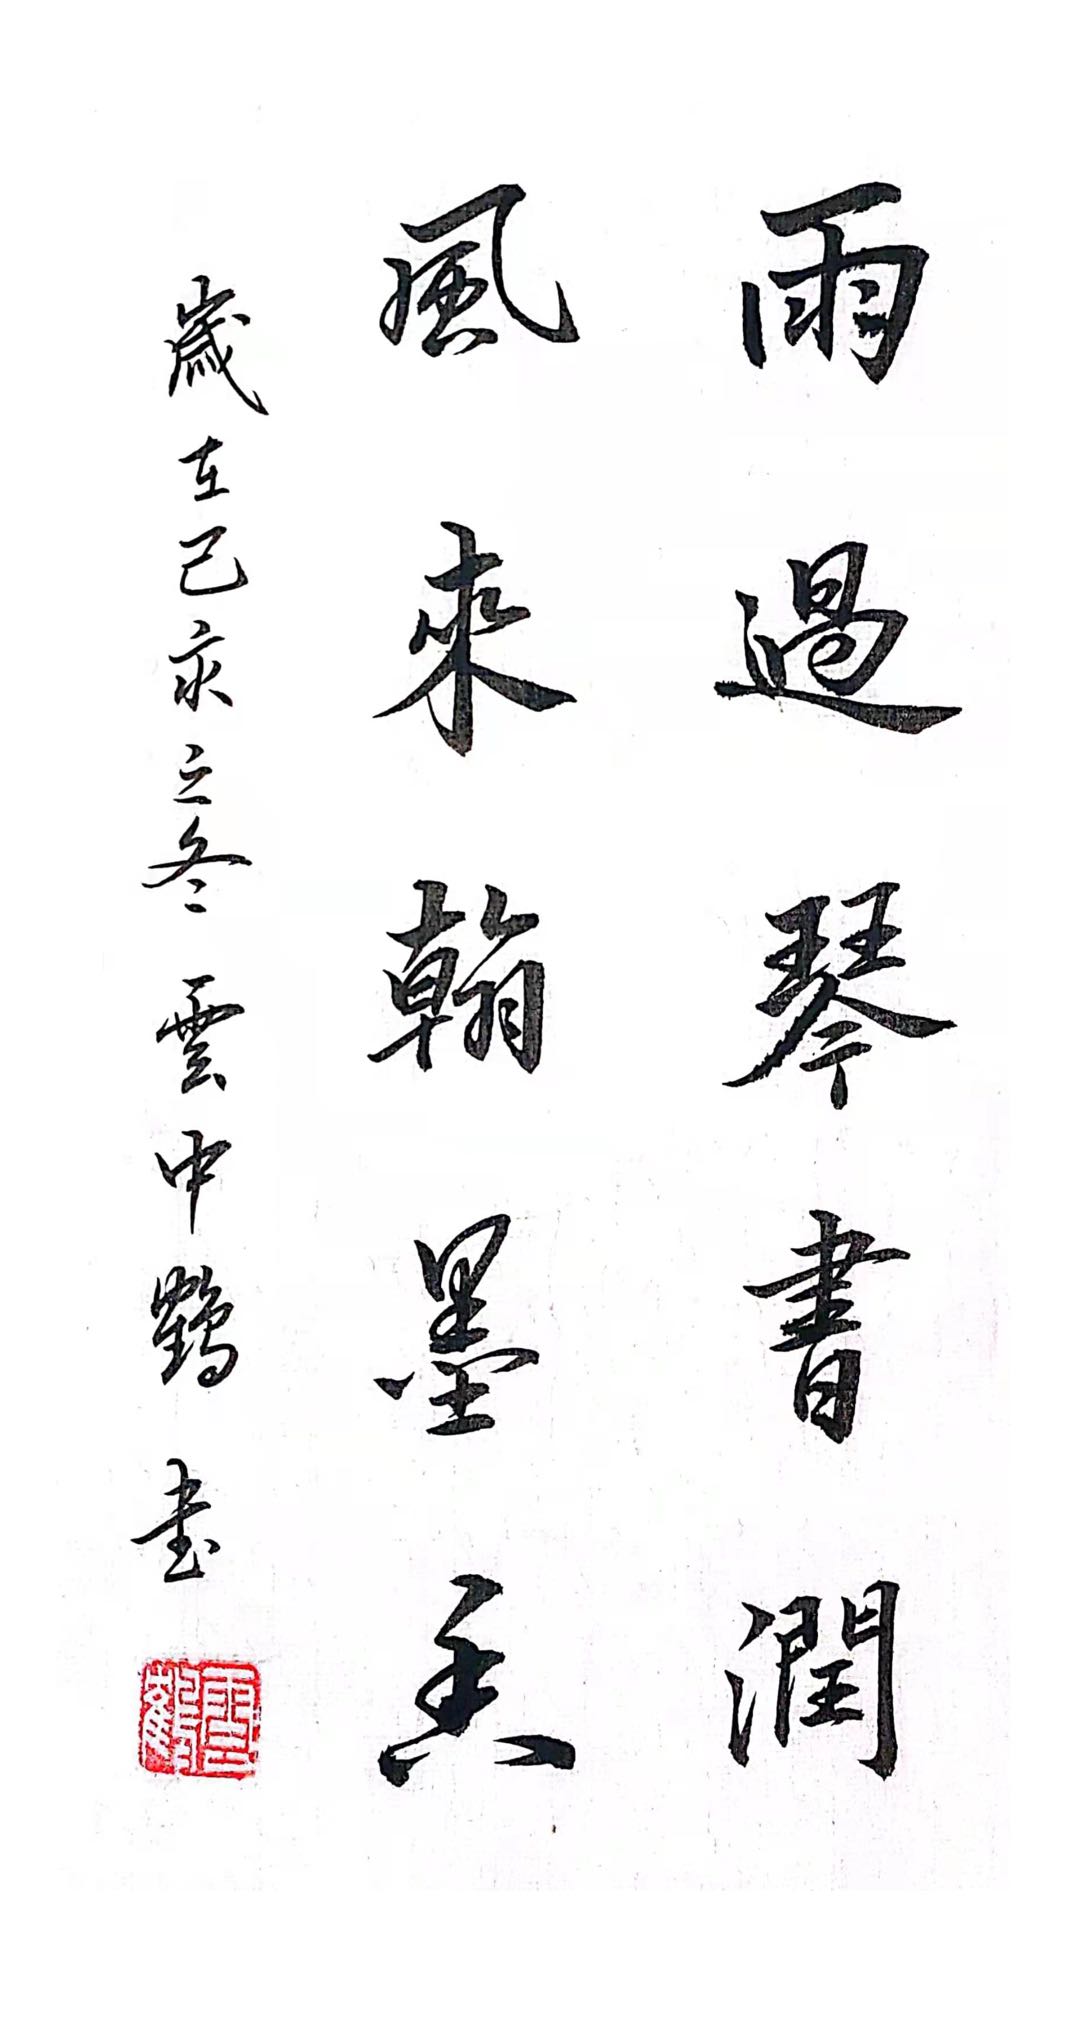 雨過琴書潤
風來翰墨香
歲在己亥之冬 雲中鶴書